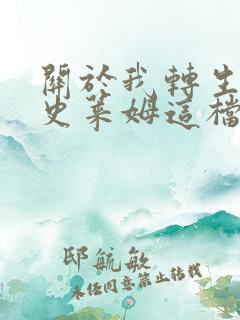 關於我轉生
史萊姆這檔
邸毓敏
未经同意禁止转载